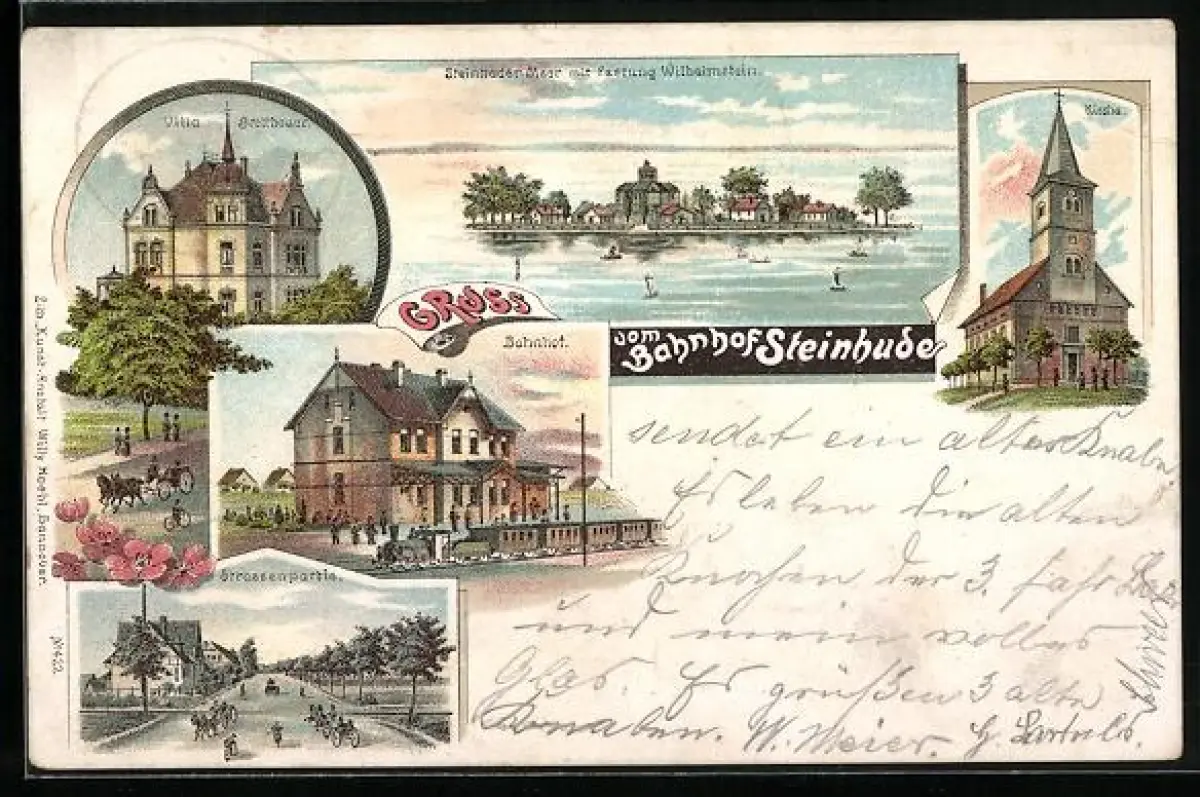 Steinhuder Meer mit Festung Wilhelmstein.
Villa
Kirche.
GRUSS
vom
Bahnhof Steinhude
Bahnhof.
Strassenpartie.
Lith. Kunst-Anstalt Willy Hoehl, Hannover.
No 422.
sendet ein alter Knabe
Es leben die alten
Knochen der 3.
und mein volles
Glas. Es grüßen 3 alte
Knaben. W. Meier. H.